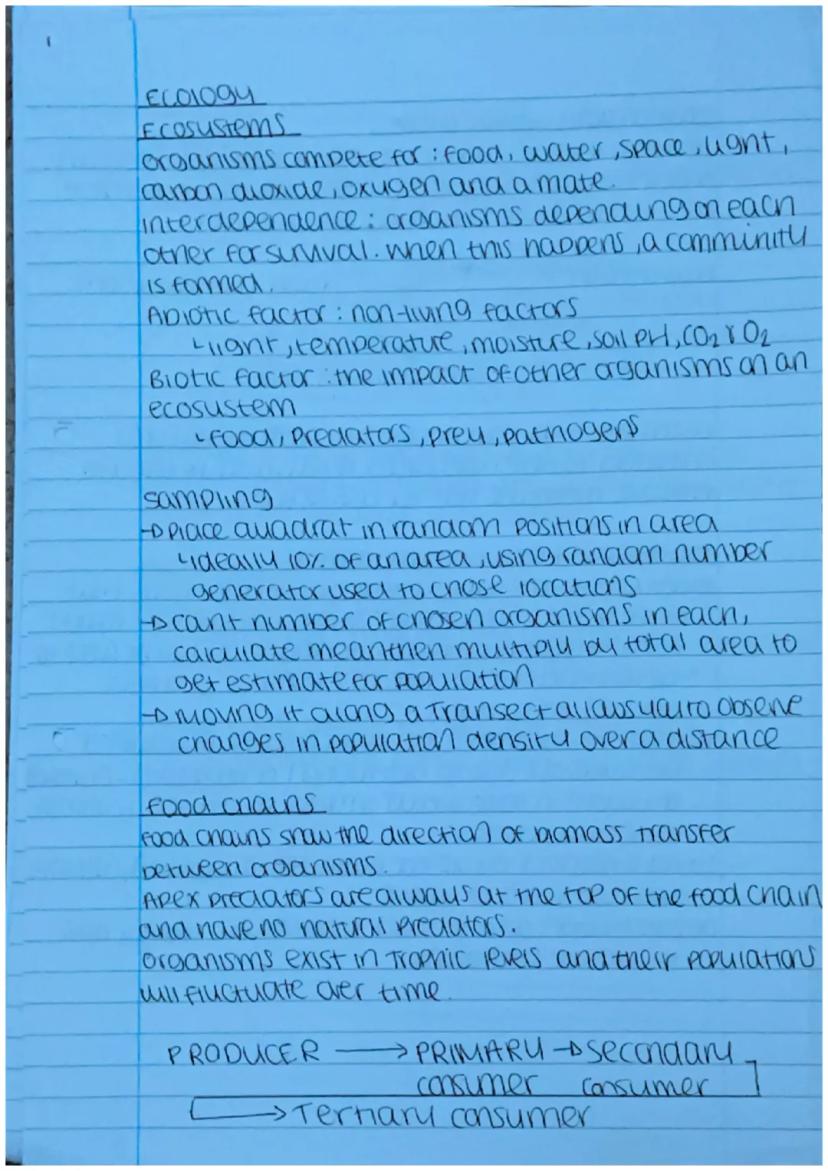 1
Ecology
Ecosystems
organisms compete for : food, water, space, light,
carbon dioxide, oxygen and a mate.
interdependence : organisms depending on each
other for survival. when this happens, a comminity
is formed.
Abiotic factor : non-living factors
↳light, temperature, moisture, soil pH, CO₂ & O₂
Biotic factor : the impact of other organisms on an
ecosystem
↳food, predators, prey, pathogens
sampling
→ place quadrat in random positions in area
↳ideally 10% of an area, using random number
generator used to chose locations
→ count number of chosen organisms in each,
calculate mean then multiply by total area to
get estimate for population
→ moving it along a transect allows you to observe
changes in population density over a distance
food chains
food chains show the direction of biomass transfer
between organisms.
Apex predators are always at the top of the food chain
and have no natural predators.
organisms exist in trophic levels and their populations
will fluctuate over time.
PRODUCER → PRIMARY → secondary
consumer consumer
→ Tertiary consumer